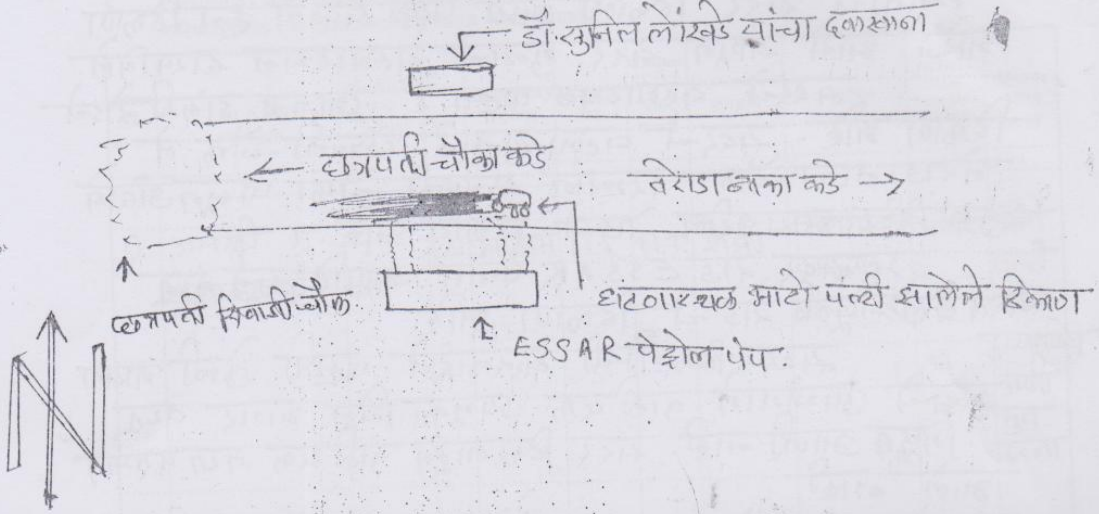 डॉ. सुनिल लोखंडे यांचा दवाखाना
← छत्रपती चौका कडे
तेराडा नाका कडे →
छत्रपती शिवाजी चौक
घटनास्थळ माटो पल्टी झालेले ठिकाण
ESSAR पेट्रोल पंप
N